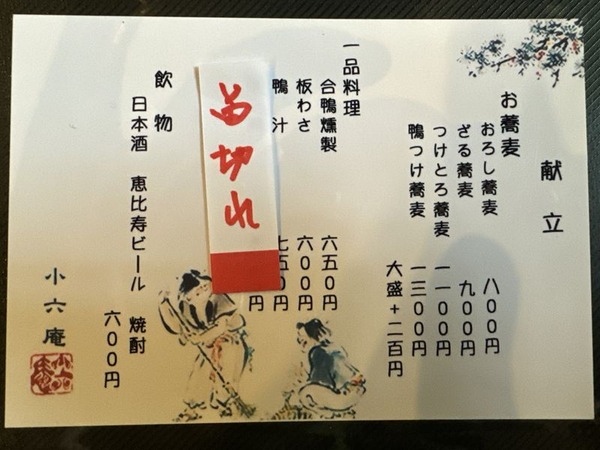 献立
お蕎麦
おろし蕎麦 八〇〇円
ざる蕎麦 九〇〇円
つけとろ蕎麦 一一〇〇円
鴨つけ蕎麦 一三〇〇円
大盛+二百円
一品料理
合鴨燻製 六五〇円
板わさ 六〇〇円
鴨汁 七五〇円
円
品切れ
飲物
日本酒 恵比寿ビール 焼酎
六〇〇円
小六庵